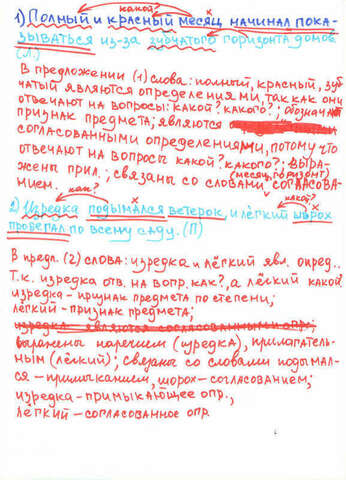 какой?
1) Полный и красный месяц начинал пока-
зываться из-за зубчатого горизонта домов.
(Л.)
В предложении (1) слова: полный, красный, зуб
чатый являются определениями, так как они
отвечают на вопросы: какой? какого?; обознач
признак предмета; являются
согласованными определениями, потому что
отвечают на вопросы какой? какого?; выра-
жены прил.; связаны со словами согласова-
(месяц, горизонт)
нием.
как?
какой?
2) Изредка подымался ветерок, и лёгкий шорох
пробегал по всему саду. (П)
В предл. (2) слова: изредка и лёгкий явл. опред..
Т.к. изредка отв. на вопр. как?, а лёгкий какой
изредка - признак предмета по степени;
лёгкий - признак предмета;
изредка являются согласованными опр.
выражены наречием (изредка), прилагатель-
ным (лёгкий); связаны со словами подымал-
ся - примыканием, шорох - согласованием;
изредка - примыкающее опр.,
лёгкий - согласованное опр.